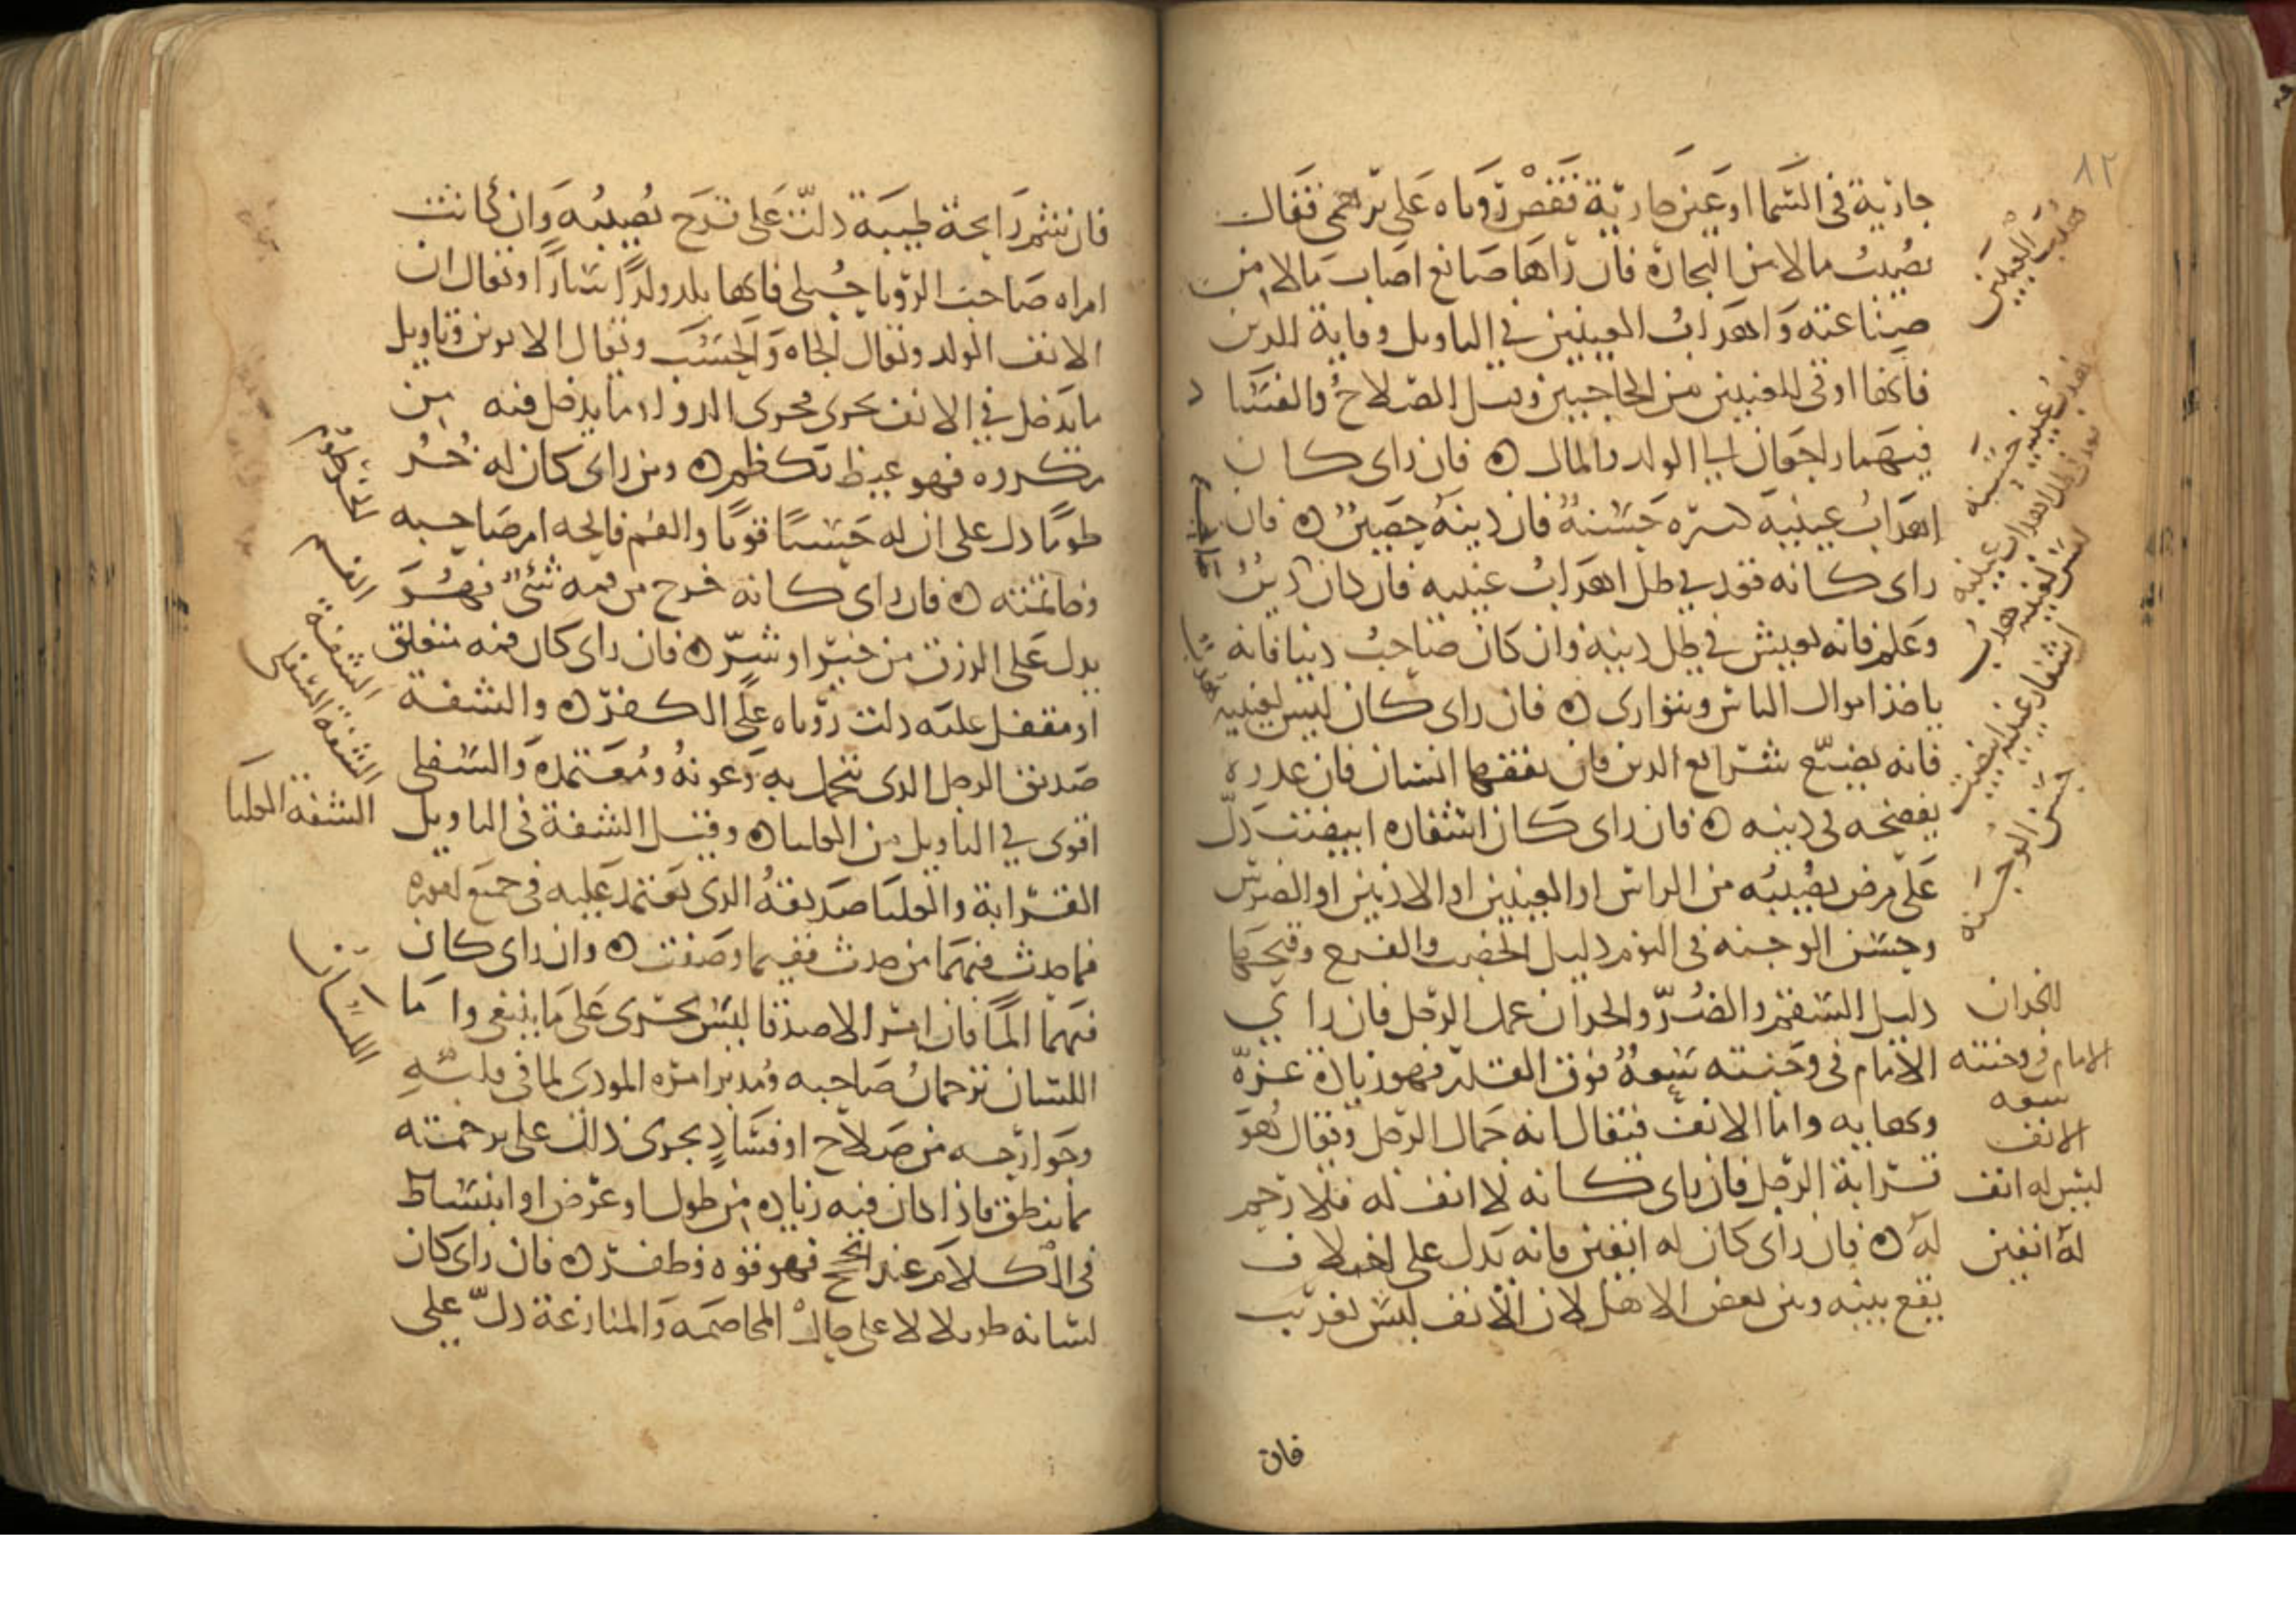 ٨٢
جارية في السما او عين جارية فقص روياه على فقال
تصيب مالا من التجارة فان راها صانع اصاب مالا من
صناعته واهداب العينين في التاويل وقاية للدين
فانها اوقى للعينين من الحاجبين وقيل الصلاح والفساد
فيهما راجعان الى الولد والمال ه فان راى كان
اهداب عينيه كثيره حسنة فان دينه حصين ه فان
راى كانه قعد في ظل اهداب عينيه فان كان دين
وعلم فانه يعيش في ظل دينه وان كان صاحب دنيا فانه
ياخذ اموال الناس ويتوارى ه فان راى كان ليس لعينيه
فانه يضيع شرايع الدين فان نتفها انسان فان عدوه
يفضحه في دينه ه فان راى كان اشفاره ابيضت دل
على مرض يصيبه من الراس او العينين او الاذنين او الضرس
وحسن الوجنه في النوم دليل الخصب والفرح وقبحها
دليل السقم والضر والخدان عمل الرجل فان راي
الامام في وجنته سعة فوق القدر فهو زيادة عزه
وبهايه واما الانف فيقال انه جمال الرجل ويقال هو
قرابة الرجل فان راى كانه لا انف له فلا رحم
له ه فان راى كان له انفين فانه يدل على اختلاف
يقع بينه وبين بعض الاهل لان الانف ليس بغريب
فان
هدب العينين
هدب عينيه حسنه
قعد في ظل اهداب عينيه
ليس لعينيه هدب
اشفار عينيه ابيضت
حسن الوجنه
الخدان
الامام في وجنته
سعه
الانف
ليس له انف
له انفين
فان شم رايحة طيبة دلت على فرح يصيبه وان كانت
امراه صاحب الرويا حبلى فانها تلد ولدا سارا ويقال ان
الانف الولد ويقال الجاه والحسب ويقال الابوين وتاويل
ما يدخل في الانف يجرى مجرى الدوا وما يدخل فيه من
مكروه فهو غيظ يكظم ه ومن راى كان له
طوما دل على ان له حسبا قويا والفم فاتحه امر صاحبه
وخاتمته ه فان راى كانه خرج من فمه شئ فهو
يدل على الرزق من خير او شر ه فان راى كان فمه منغلق
او مقفل عليه دلت روياه على الكفر ه والشفة
صديق الرجل الذي يتجمل به وعونه ومعتمده والسفلى
اقوى في التاويل من العليا ه وقيل الشفة في التاويل
القرابة والعليا صديقه الذي يعتمد عليه في جميع اموره
فما حدث فيهما من حدث ففيما وصفت ه وان راى كان
فيهما الما فان امر الاصدقا ليس يجرى على ما ينبغي واما
اللسان ترجمان صاحبه ومدبر امره المودى لما في قلبه
وجوارحه من صلاح او فساد يجرى ذلك على ترجمته
بما ينطق فاذا كان فيه زيادة من طول او عرض او انبساط
في الكلام عند الحجج فهو قوه وظفر ه فان راى كان
لسانه طويلا لا على حال المخاصمه والمنازعة دل على
الخرطوم
الفم
الشفة
الشفة السفلى
الشفه العليا
اللسان